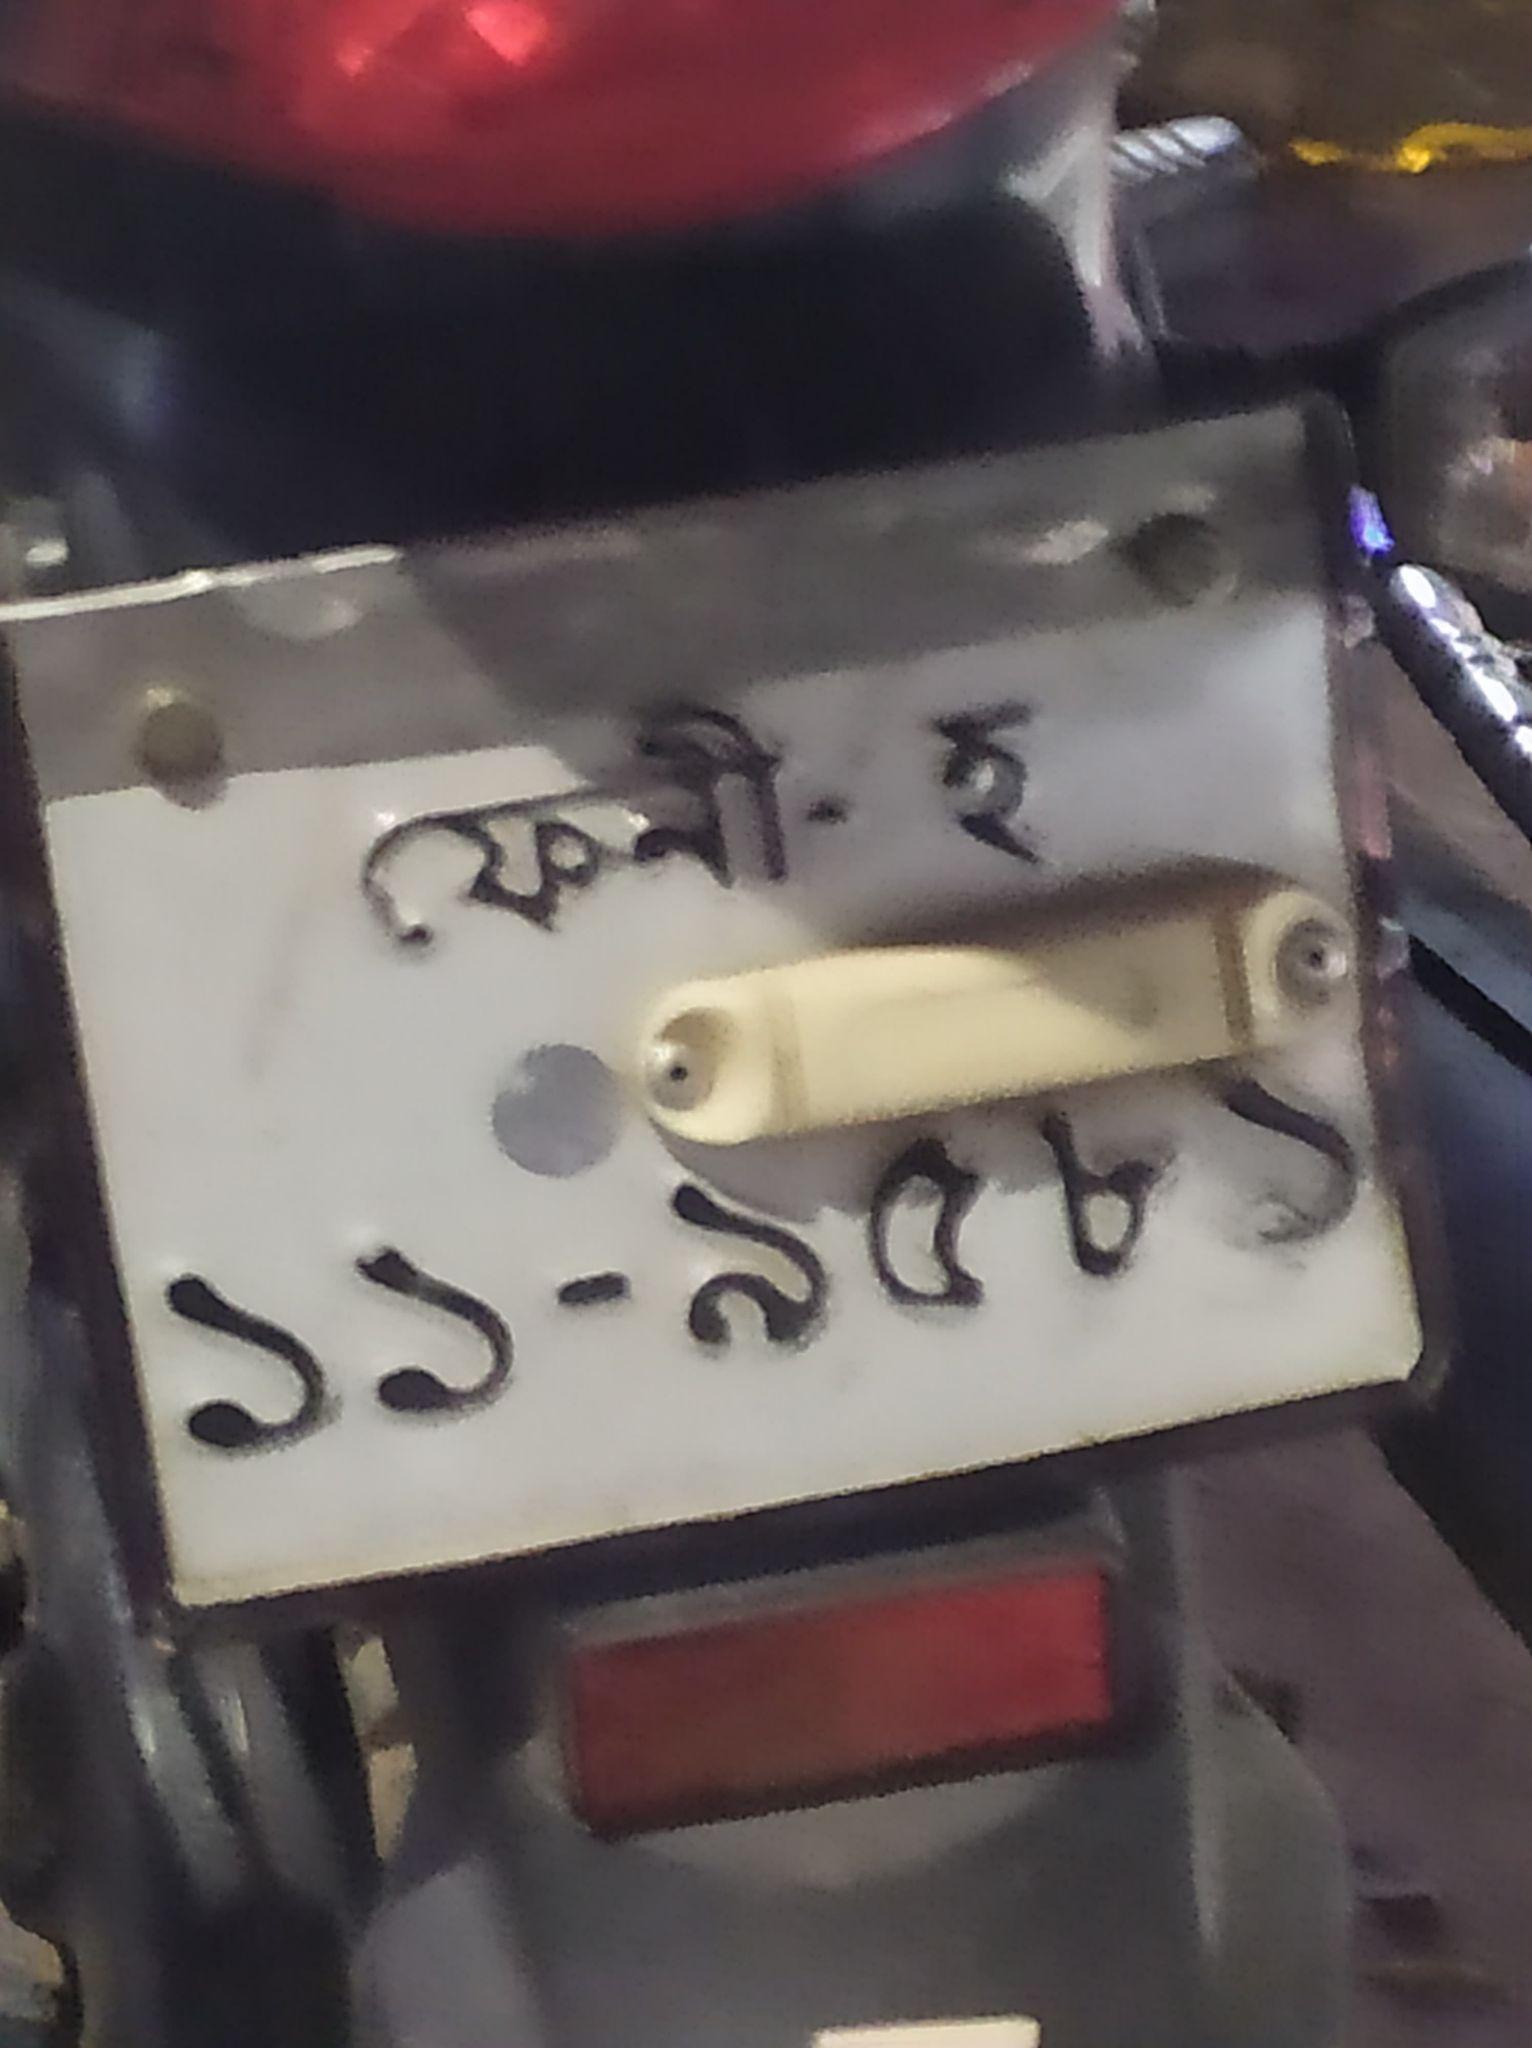 ফেনী - হ
১১-৯৫৮১